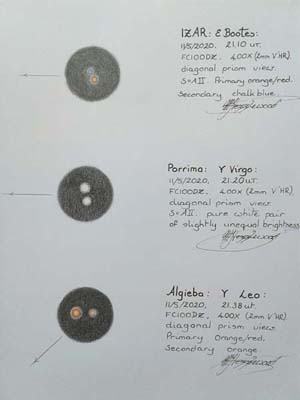 IZAR: Ɛ Bootes:
11/5/2020. 21.10 UT.
FC100DZ. 400X (2mm V'HR).
diagonal prism view.
S=AII. Primary orange/red.
Secondary chalk blue.
Porrima: γ Virgo:
11/5/2020. 21.20 UT.
FC100DZ. 400X (2mm V'HR)
diagonal prism view
S=AII. pure white pair
of slightly unequal brightness
Algieba: γ Leo:
11/5/2020. 21.38 UT.
FC100DZ. 400X (2mm V'HR)
diagonal prism view.
Primary Orange/red.
Secondary orange.